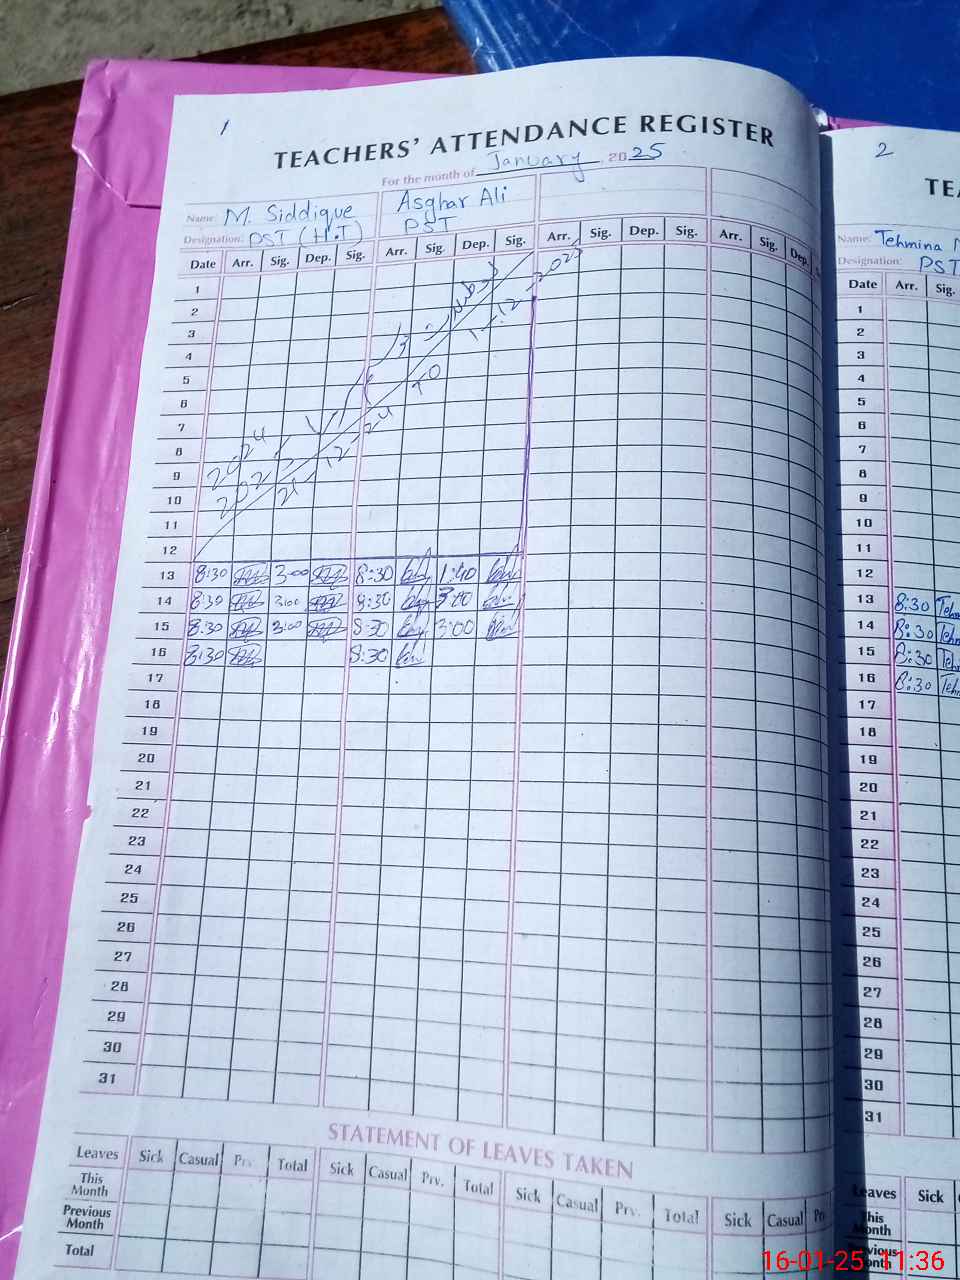 1
TEACHERS' ATTENDANCE REGISTER
For the month of January, 2025
Name: M. Siddique Asghar Ali
Designation: PST (H.T) PST
Date Arr. Sig. Dep. Sig. Arr. Sig. Dep. Sig. Arr. Sig. Dep. Sig. Arr. Sig. Dep.
1
2
3
4
5
6
7
8
9
10
11
12
13 8:30 3:00 8:30 1:40
14 8:30 3:00 8:30 3:00
15 8:30 3:00 8:30 3:00
16 8:30 8:30
17
18
19
20
21
22
23
24
25
26
27
28
29
30
31
STATEMENT OF LEAVES TAKEN
Leaves Sick Casual Prv. Total Sick Casual Prv. Total Sick Casual Prv. Total Sick Casual
This Month
Previous Month
Total
2
TE
Name: Tehmina
Designation: PST
Date Arr. Sig.
1
2
3
4
5
6
7
8
9
10
11
12
13 8:30 Teh
14 8:30 Teh
15 8:30 Teh
16 8:30 Teh
17
18
19
20
21
22
23
24
25
26
27
28
29
30
31
Leaves Sick
This
Month
16-01-25 11:36